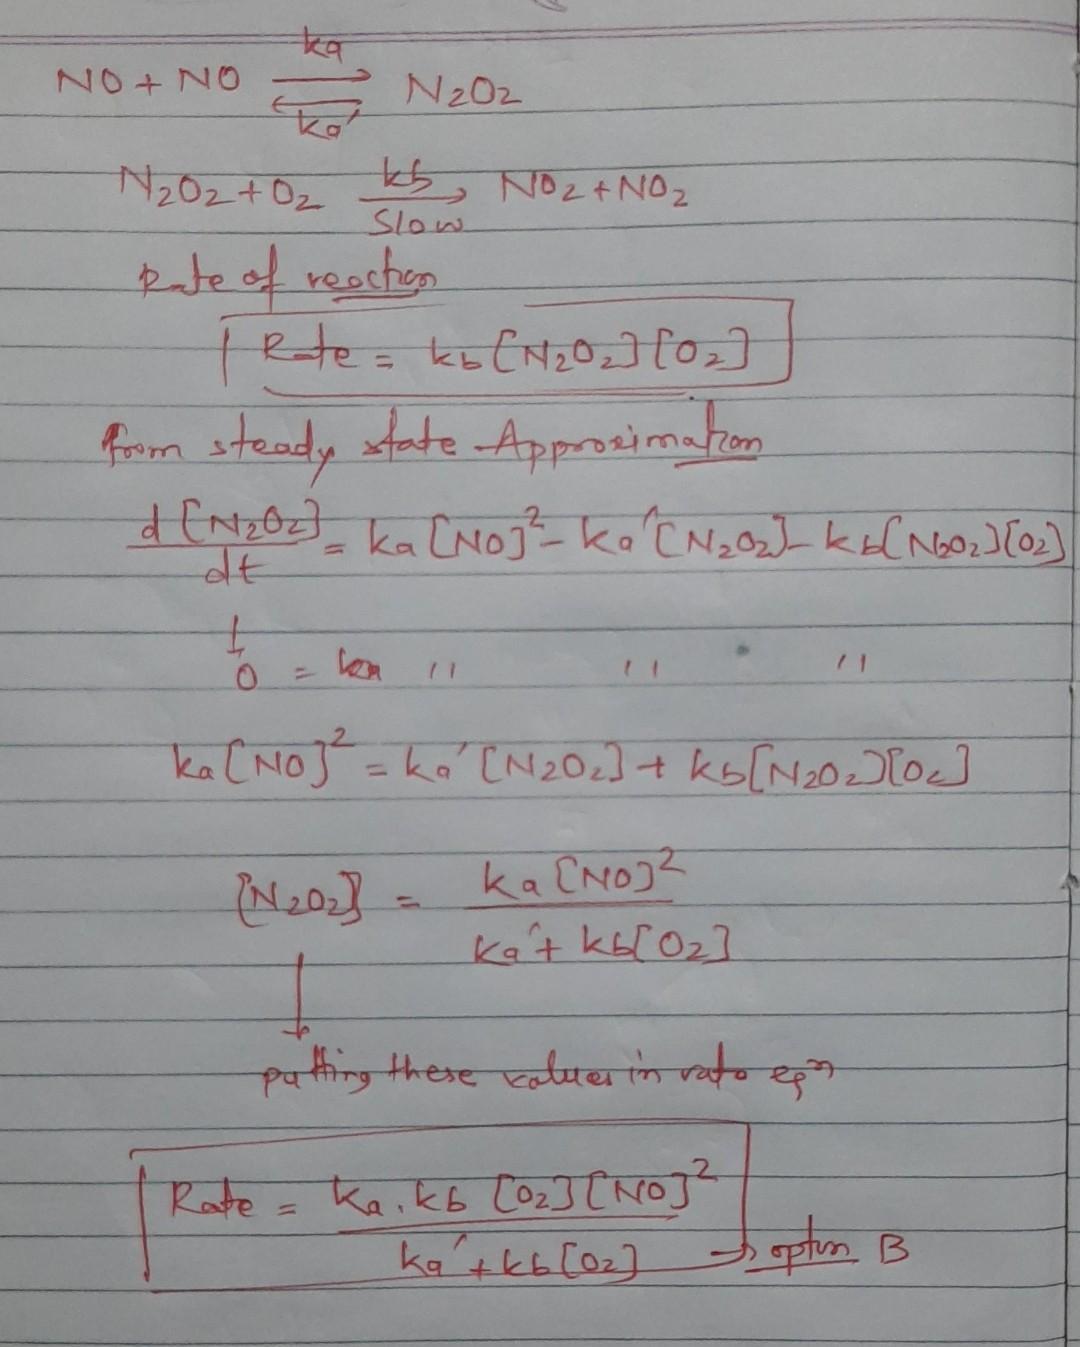 NO + NO ka ⇌ ka' N2O2
N2O2 + O2 kb → slow NO2 + NO2
Rate of reaction
Rate = kb [N2O2] [O2]
from steady state Approximation
d [N2O2] / dt = ka [NO]² - ka' [N2O2] - kb [N2O2] [O2]
↓
0 = " " "
ka [NO]² = ka' [N2O2] + kb [N2O2] [O2]
[N2O2] = ka [NO]² / ka' + kb [O2]
↓
putting these values in rate eqn
Rate = ka . kb [O2] [NO]² / ka' + kb [O2] → option B